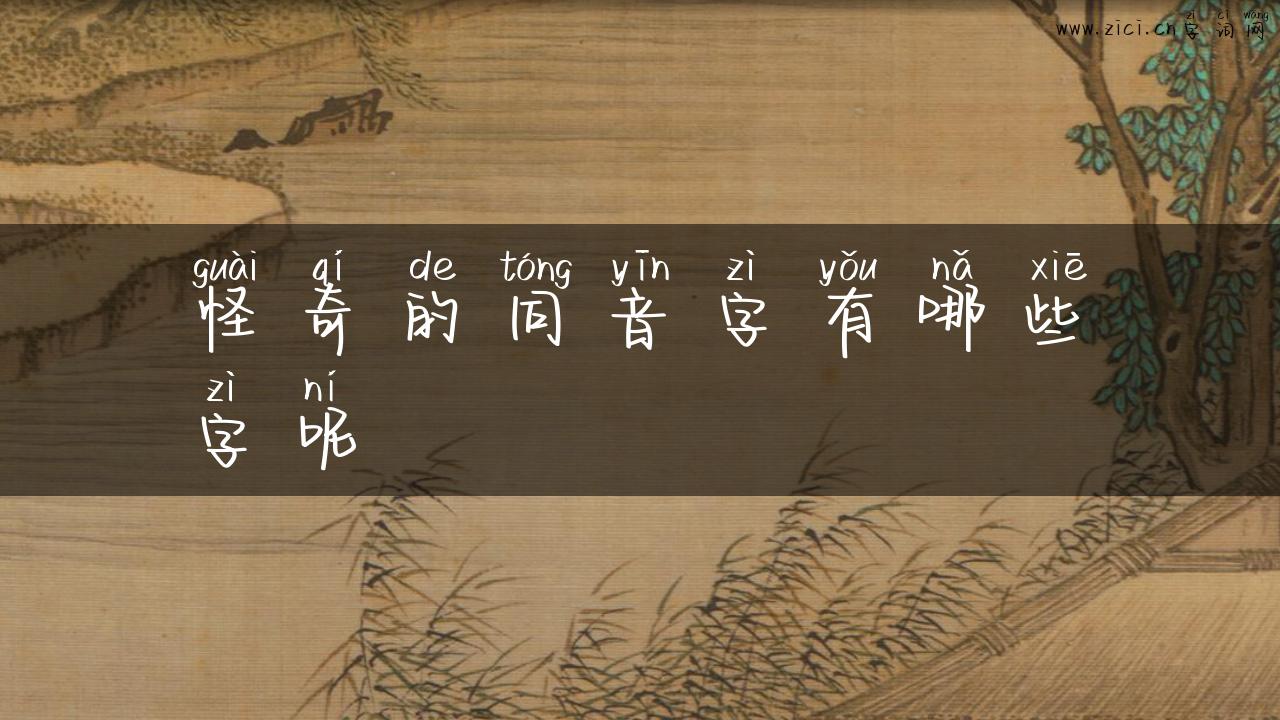 zì cí wǎng
www.zici.cn 字 词 网
guài qí de tóng yīn zì yǒu nǎ xiē
怪 奇 的 同 音 字 有 哪 些
zì ní
字 呢